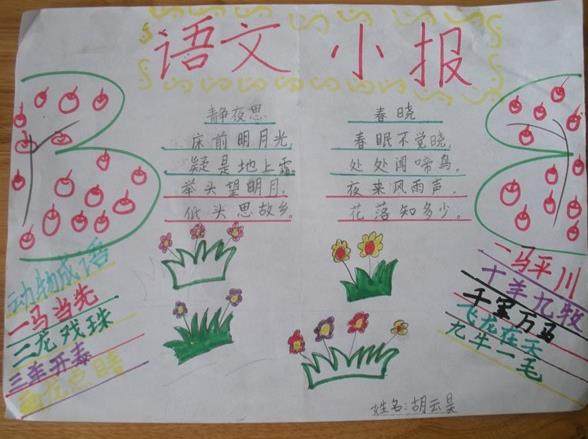 语文小报
静夜思
床前明月光,
疑是地上霜,
举头望明月,
低头思故乡。
春晓
春眠不觉晓,
处处闻啼鸟,
夜来风雨声,
花落知多少。
动物成语
一马当先
二龙戏珠
三羊开泰
画龙点睛
一马平川
十羊九牧
千军万马
飞龙在天
九牛一毛
姓名:胡云昊